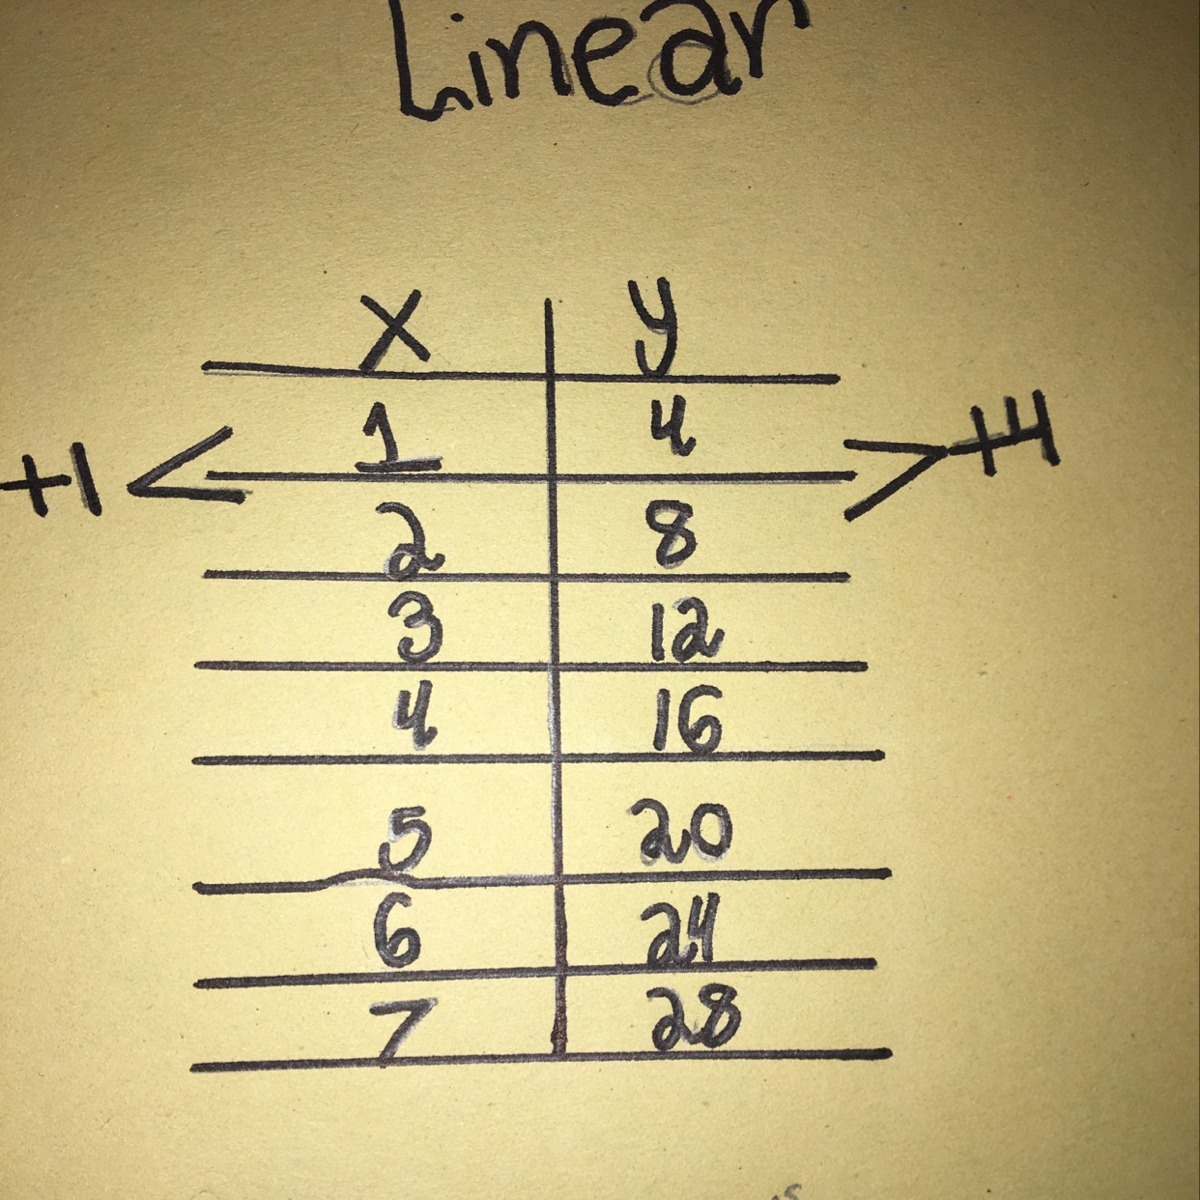 Linear
x y
1 4
+1 < > +4
2 8
3 12
4 16
5 20
6 24
7 28